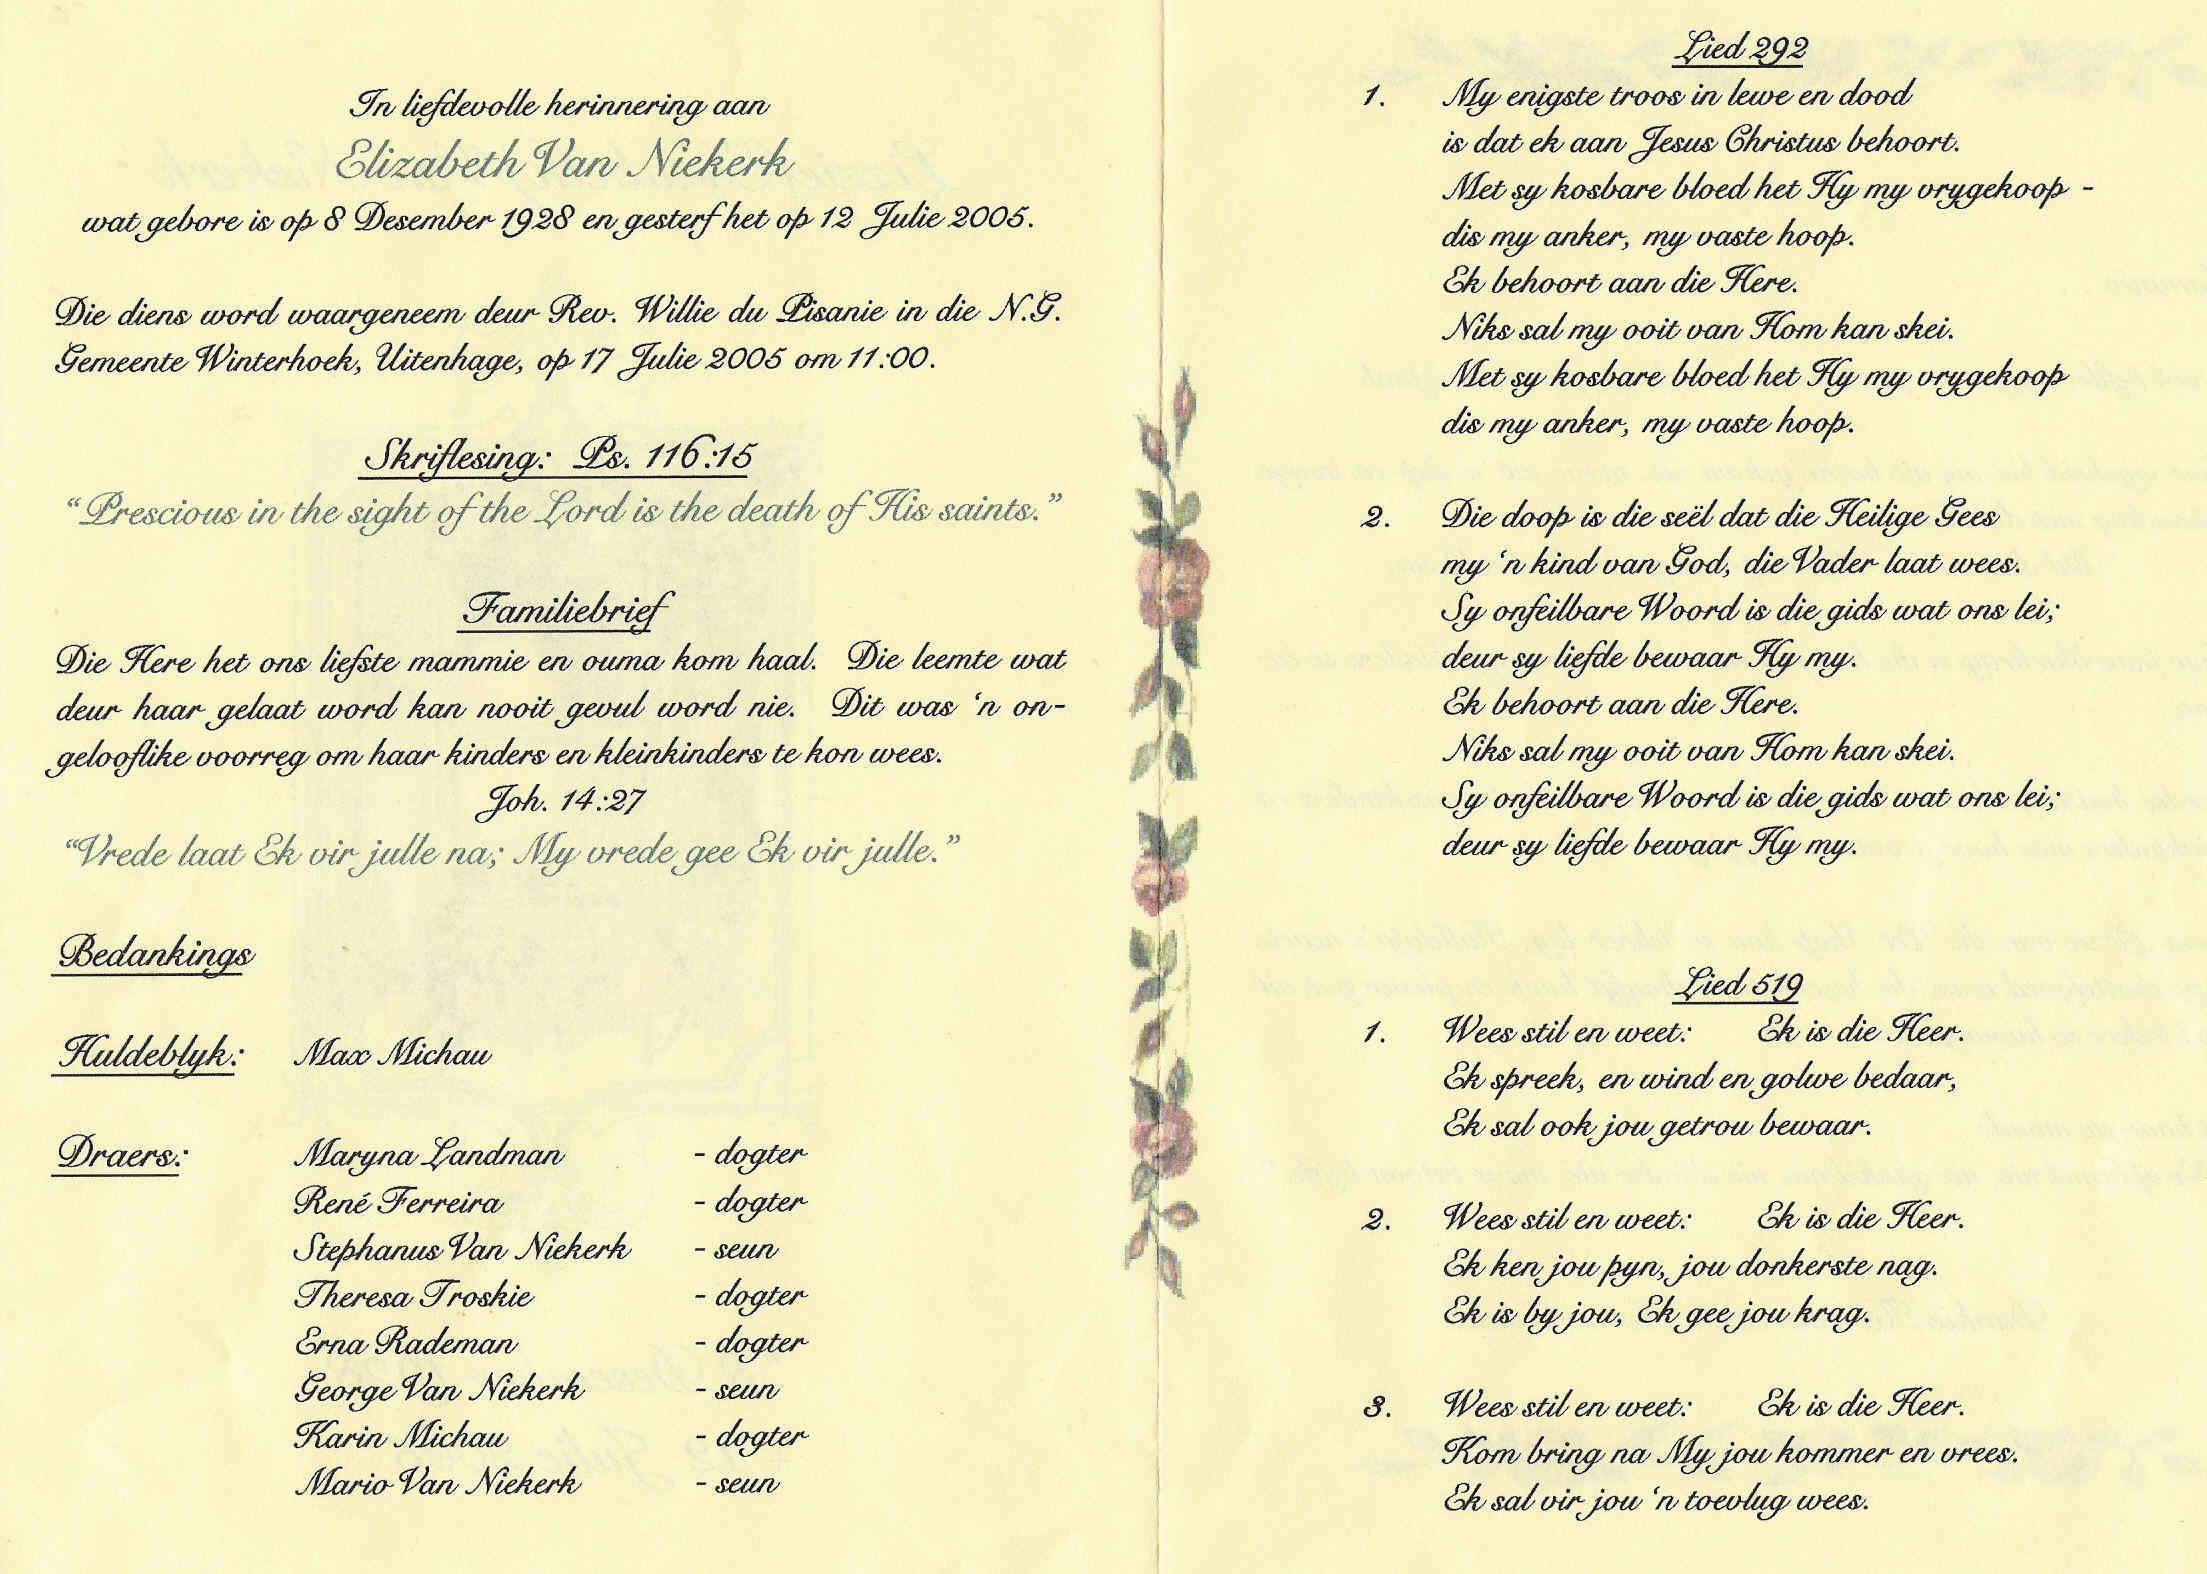 In liefdevolle herinnering aan
Elizabeth Van Niekerk
wat gebore is op 8 Desember 1928 en gesterf het op 12 Julie 2005.
Die diens word waargeneem deur Rev. Willie du Pisanie in die N.G.
Gemeente Winterhoek, Uitenhage, op 17 Julie 2005 om 11:00.
Skriflesing: Ps. 116:15
“Prescious in the sight of the Lord is the death of His saints.”
Familiebrief
Die Here het ons liefste mammie en ouma kom haal. Die leemte wat
deur haar gelaat word kan nooit gevul word nie. Dit was ‘n on-
gelooflike voorreg om haar kinders en kleinkinders te kon wees.
Joh. 14:27
“Vrede laat Ek vir julle na; My vrede gee Ek vir julle.”
Bedankings
Huldeblyk: Max Michau
Draers: Maryna Landman - dogter
René Ferreira - dogter
Stephanus Van Niekerk - seun
Theresa Troskie - dogter
Erna Rademan - dogter
George Van Niekerk - seun
Karin Michau - dogter
Mario Van Niekerk - seun
Lied 292
1. My enigste troos in lewe en dood
is dat ek aan Jesus Christus behoort.
Met sy kosbare bloed het Hy my vrygekoop -
dis my anker, my vaste hoop.
Ek behoort aan die Here.
Niks sal my ooit van Hom kan skei.
Met sy kosbare bloed het Hy my vrygekoop
dis my anker, my vaste hoop.
2. Die doop is die seël dat die Heilige Gees
my ‘n kind van God, die Vader laat wees.
Sy onfeilbare Woord is die gids wat ons lei;
deur sy liefde bewaar Hy my.
Ek behoort aan die Here.
Niks sal my ooit van Hom kan skei.
Sy onfeilbare Woord is die gids wat ons lei;
deur sy liefde bewaar Hy my.
Lied 519
1. Wees stil en weet: Ek is die Heer.
Ek spreek, en wind en golwe bedaar,
Ek sal ook jou getrou bewaar.
2. Wees stil en weet: Ek is die Heer.
Ek ken jou pyn, jou donkerste nag.
Ek is by jou, Ek gee jou krag.
3. Wees stil en weet: Ek is die Heer.
Kom bring na My jou kommer en vrees.
Ek sal vir jou ‘n toevlug wees.